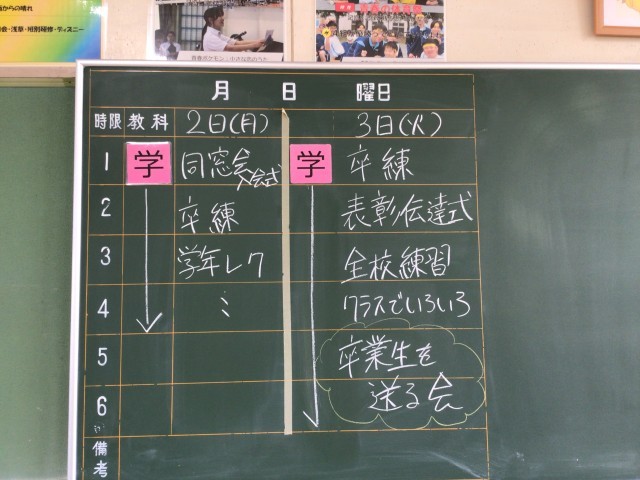 会・浅草・班別研修・ディズニー
月 日 曜日
時限 教科 2日(月) 3日(火)
1 学 同窓会入会式 学 卒練
2 卒練 表彰伝達式
3 学年レク 全校練習
4 ミ クラスでいろいろ
5 卒業生を
6 送る会
備考